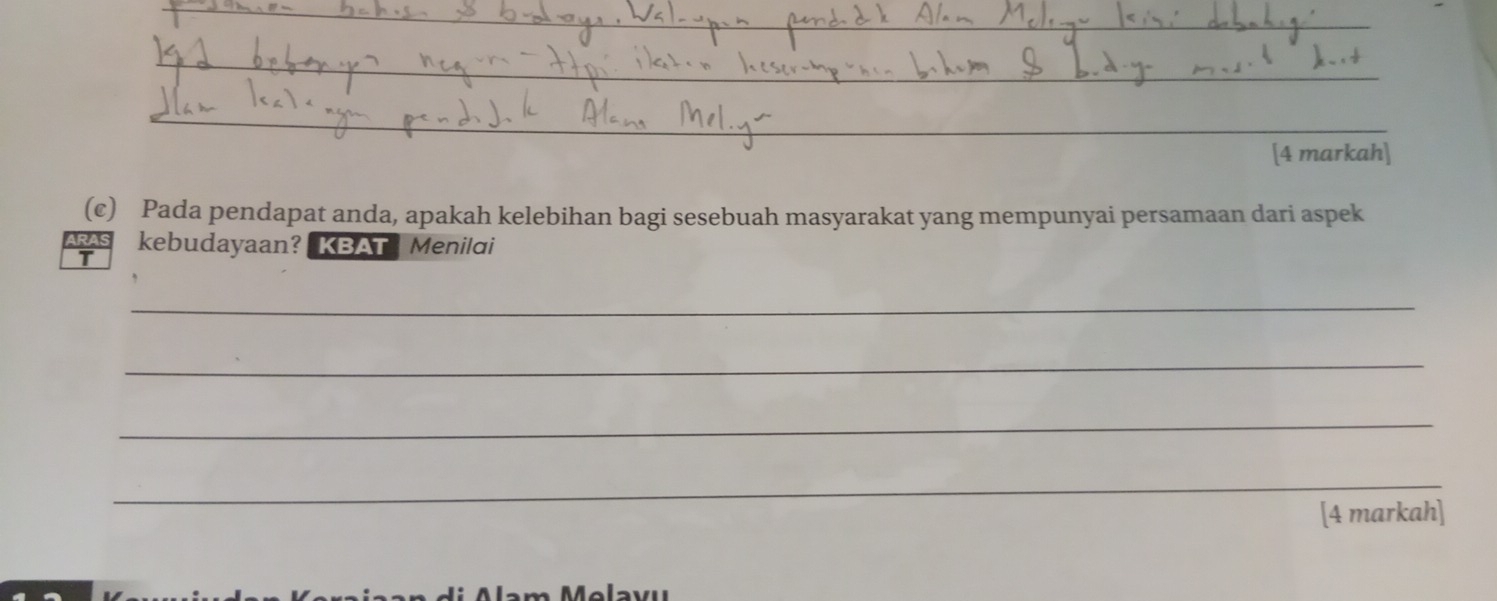 persamaan bahasa & budaya. Walaupun penduduk Alam Melayu kini dibahagi
kpd beberapa negara - ttpi ikatan keserumpunan bahasa & budaya masih kuat
dlam kalangan penduduk Alam Melayu
[4 markah]
(c) Pada pendapat anda, apakah kelebihan bagi sesebuah masyarakat yang mempunyai persamaan dari aspek
ARAS T kebudayaan? KBAT Menilai
[4 markah]
Kewujudan Kerajaan di Alam Melayu